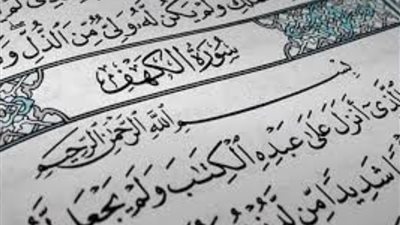 وَلَمْ يَكُن لَّهُ وَلِيٌّ مِّنَ ٱلذُّلِّ
سُورَةُ الكَهْفِ
بِسْمِ ٱللَّهِ ٱلرَّحْمَٰنِ ٱلرَّحِيمِ
أَنزَلَ عَلَىٰ عَبْدِهِ ٱلْكِتَٰبَ وَلَمْ يَجْعَل
شَدِيدًا مِّن